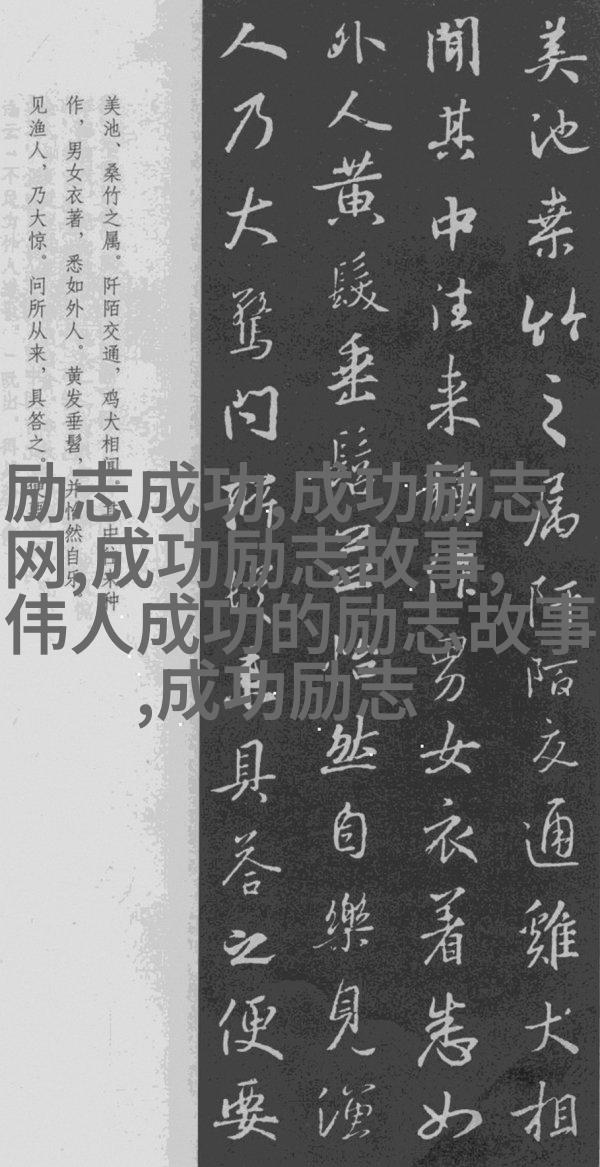 美池桑竹之属阡陌交通雞犬相
聞其中往来種作男女衣着悉如
外人黄髮垂髫並怡然自樂見漁
人乃大驚问所从来具答之便要
美池、桑竹之属。阡陌交通，鸡犬相闻。其中往来种
作，男女衣著，悉如外人。黄发垂髫，并怡然自乐。
见渔人，乃大惊。问所从来，具答之。便要
励志成功,成功励志
网,成功励志故事,
伟人成功的励志故事
,成功励志